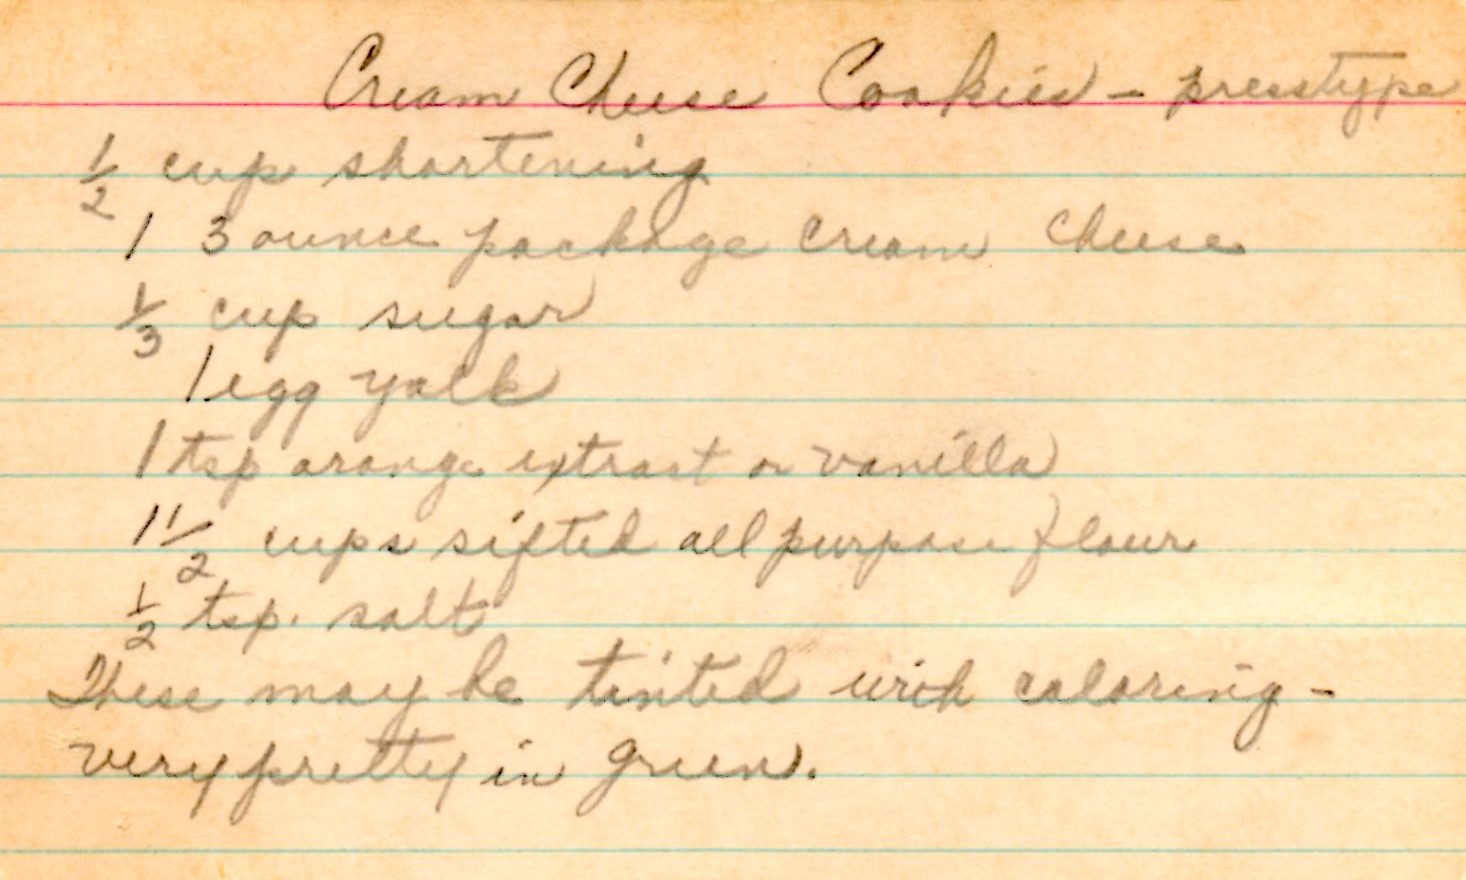 Cream Cheese Cookies - presstype
1/2 cup shortening
1 3 ounce package cream cheese
1/3 cup sugar
1 egg yolk
1 tsp orange extract or vanilla
1 1/2 cups sifted all purpose flour
1/2 tsp. salt
These may be tinted with coloring -
very pretty in green.